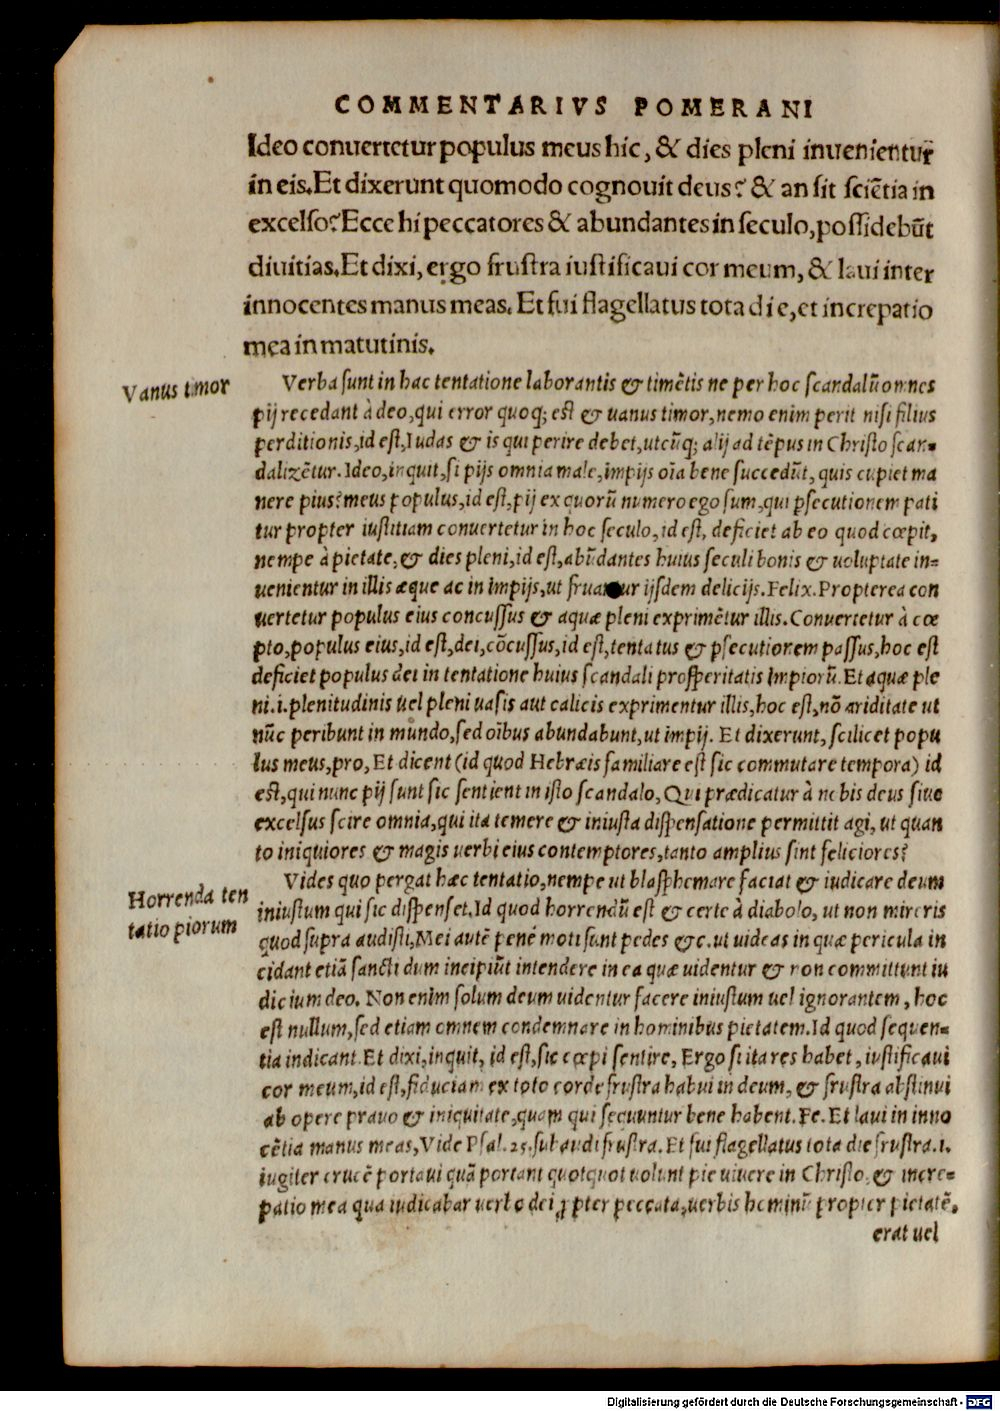 COMMENTARIVS POMERANI
Ideo conuertetur populus meus hic, & dies pleni inuenientur
in eis. Et dixerunt quomodo cognouit deus? & an sit sciẽtia in
excelso? Ecce hi peccatores & abundantes in seculo, possidebũt
diuitias. Et dixi, ergo frustra iustificaui cor meum, & laui inter
innocentes manus meas. Et fui flagellatus tota die, et increpatio
mea in matutinis.
Vanus timor
Verba sunt in hac tentatione laborantis & timẽtis ne per hoc scandalũ omnes
pij recedant à deo, qui error quoq; est & uanus timor, nemo enim perit nisi filius
perditionis, id est, Iudas & is qui perire debet, utcũq; alij ad tẽpus in Christo scan-
dalizẽtur. Ideo, inquit, si pijs omnia male, impijs oĩa bene succedũt, quis cupiet ma
nere pius? meus populus, id est, pij ex quorũ numero ego sum, qui psecutionem pati
tur propter iustitiam conuertetur in hoc seculo, id est, deficiet ab eo quod cœpit,
nempe à pietate, & dies pleni, id est, abũdantes huius seculi bonis & uoluptate in-
uenientur in illis æque ac in impijs, ut fruantur ijsdem delicijs. Felix. Propterea con
uertetur populus eius concussus & aquæ pleni exprimẽtur illis. Conuertetur à cœ
pto, populus eius, id est, dei, cõcussus, id est, tentatus & psecutionem passus, hoc est
deficiet populus dei in tentatione huius scandali prosperitatis impiorũ. Et aquæ ple
ni. i. plenitudinis uel pleni uasis aut calicis exprimentur illis, hoc est, nõ ariditate ut
nũc peribunt in mundo, sed oĩbus abundabunt, ut impij. Et dixerunt, scilicet popu
lus meus, pro, Et dicent (id quod Hebræis familiare est sic commutare tempora) id
est, qui nunc pij sunt sic sentient in isto scandalo, Qui prædicatur à nobis deus siue
excelsus scire omnia, qui ita temere & iniusta dispensatione permittit agi, ut quan
to iniquiores & magis uerbi eius contemptores, tanto amplius sint feliciores?
Horrenda ten
tatio piorum
Vides quo pergat hæc tentatio, nempe ut blasphemare faciat & iudicare deum
iniustum qui sic dispenset. Id quod horrendũ est & certe à diabolo, ut non mireris
quod supra audisti, Mei autẽ penè moti sunt pedes &c. ut uideas in quæ pericula in
cidant etiã sancti dum incipiũt intendere in ea quæ uidentur & non committunt iu
dicium deo. Non enim solum deum uidentur facere iniustum uel ignorantem, hoc
est nullum, sed etiam omnem condemnare in hominibus pietatem. Id quod sequen-
tia indicant. Et dixi, inquit, id est, sic cœpi sentire, Ergo si ita res habet, iustificaui
cor meum, id est, fiduciam ex toto corde frustra habui in deum, & frustra abstinui
ab opere prauo & iniquitate, quam qui sequuntur bene habent. Fe. Et laui in inno
cẽtia manus meas, Vide Psal. 25. subaudi frustra. Et fui flagellatus tota die frustra. i.
iugiter crucẽ portaui quã portant quotquot uolunt pie uiuere in Christo, & incre-
patio mea qua iudicabar uerbo dei ꝓpter peccata, uerbis hominũ propter pietatẽ,
erat uel
Digitalisierung gefördert durch die Deutsche Forschungsgemeinschaft - DFG